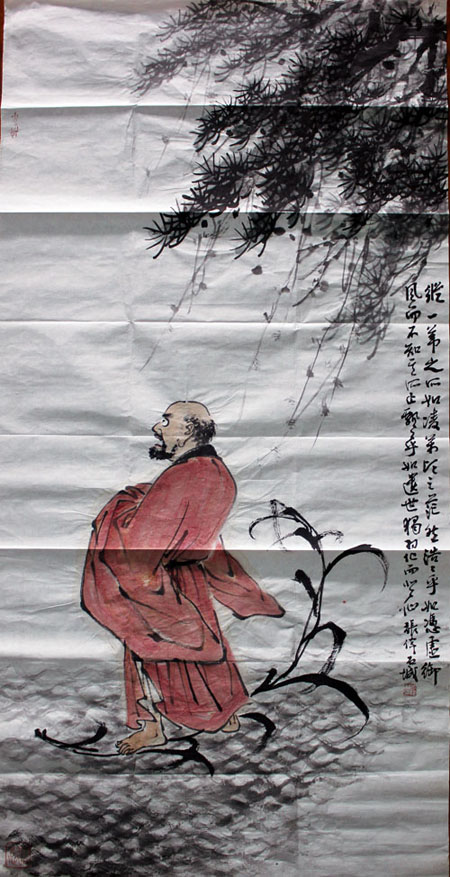 縱一葦之所如凌萬頃之茫然浩〻乎如憑虛御
風而不知其所止飄〻乎如遺世獨羽化而登仙